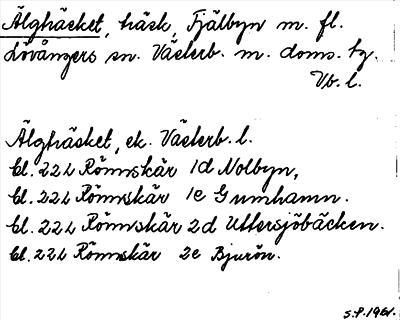 Älghäsket, häsk, Fjälbyn m. fl.
Lövångers sn. Västerb. m. doms. tg.
Vb. l.
Älghäsket, ek. Västerb. l.
Bl. 22L Rönnskär 1d Nolbyn,
Bl. 22L Rönnskär 1e Gumhamn.
Bl. 22L Rönnskär 2d Uttersjöbäcken.
Bl. 22L Rönnskär 2e Bjurön.
S.P. 1961.